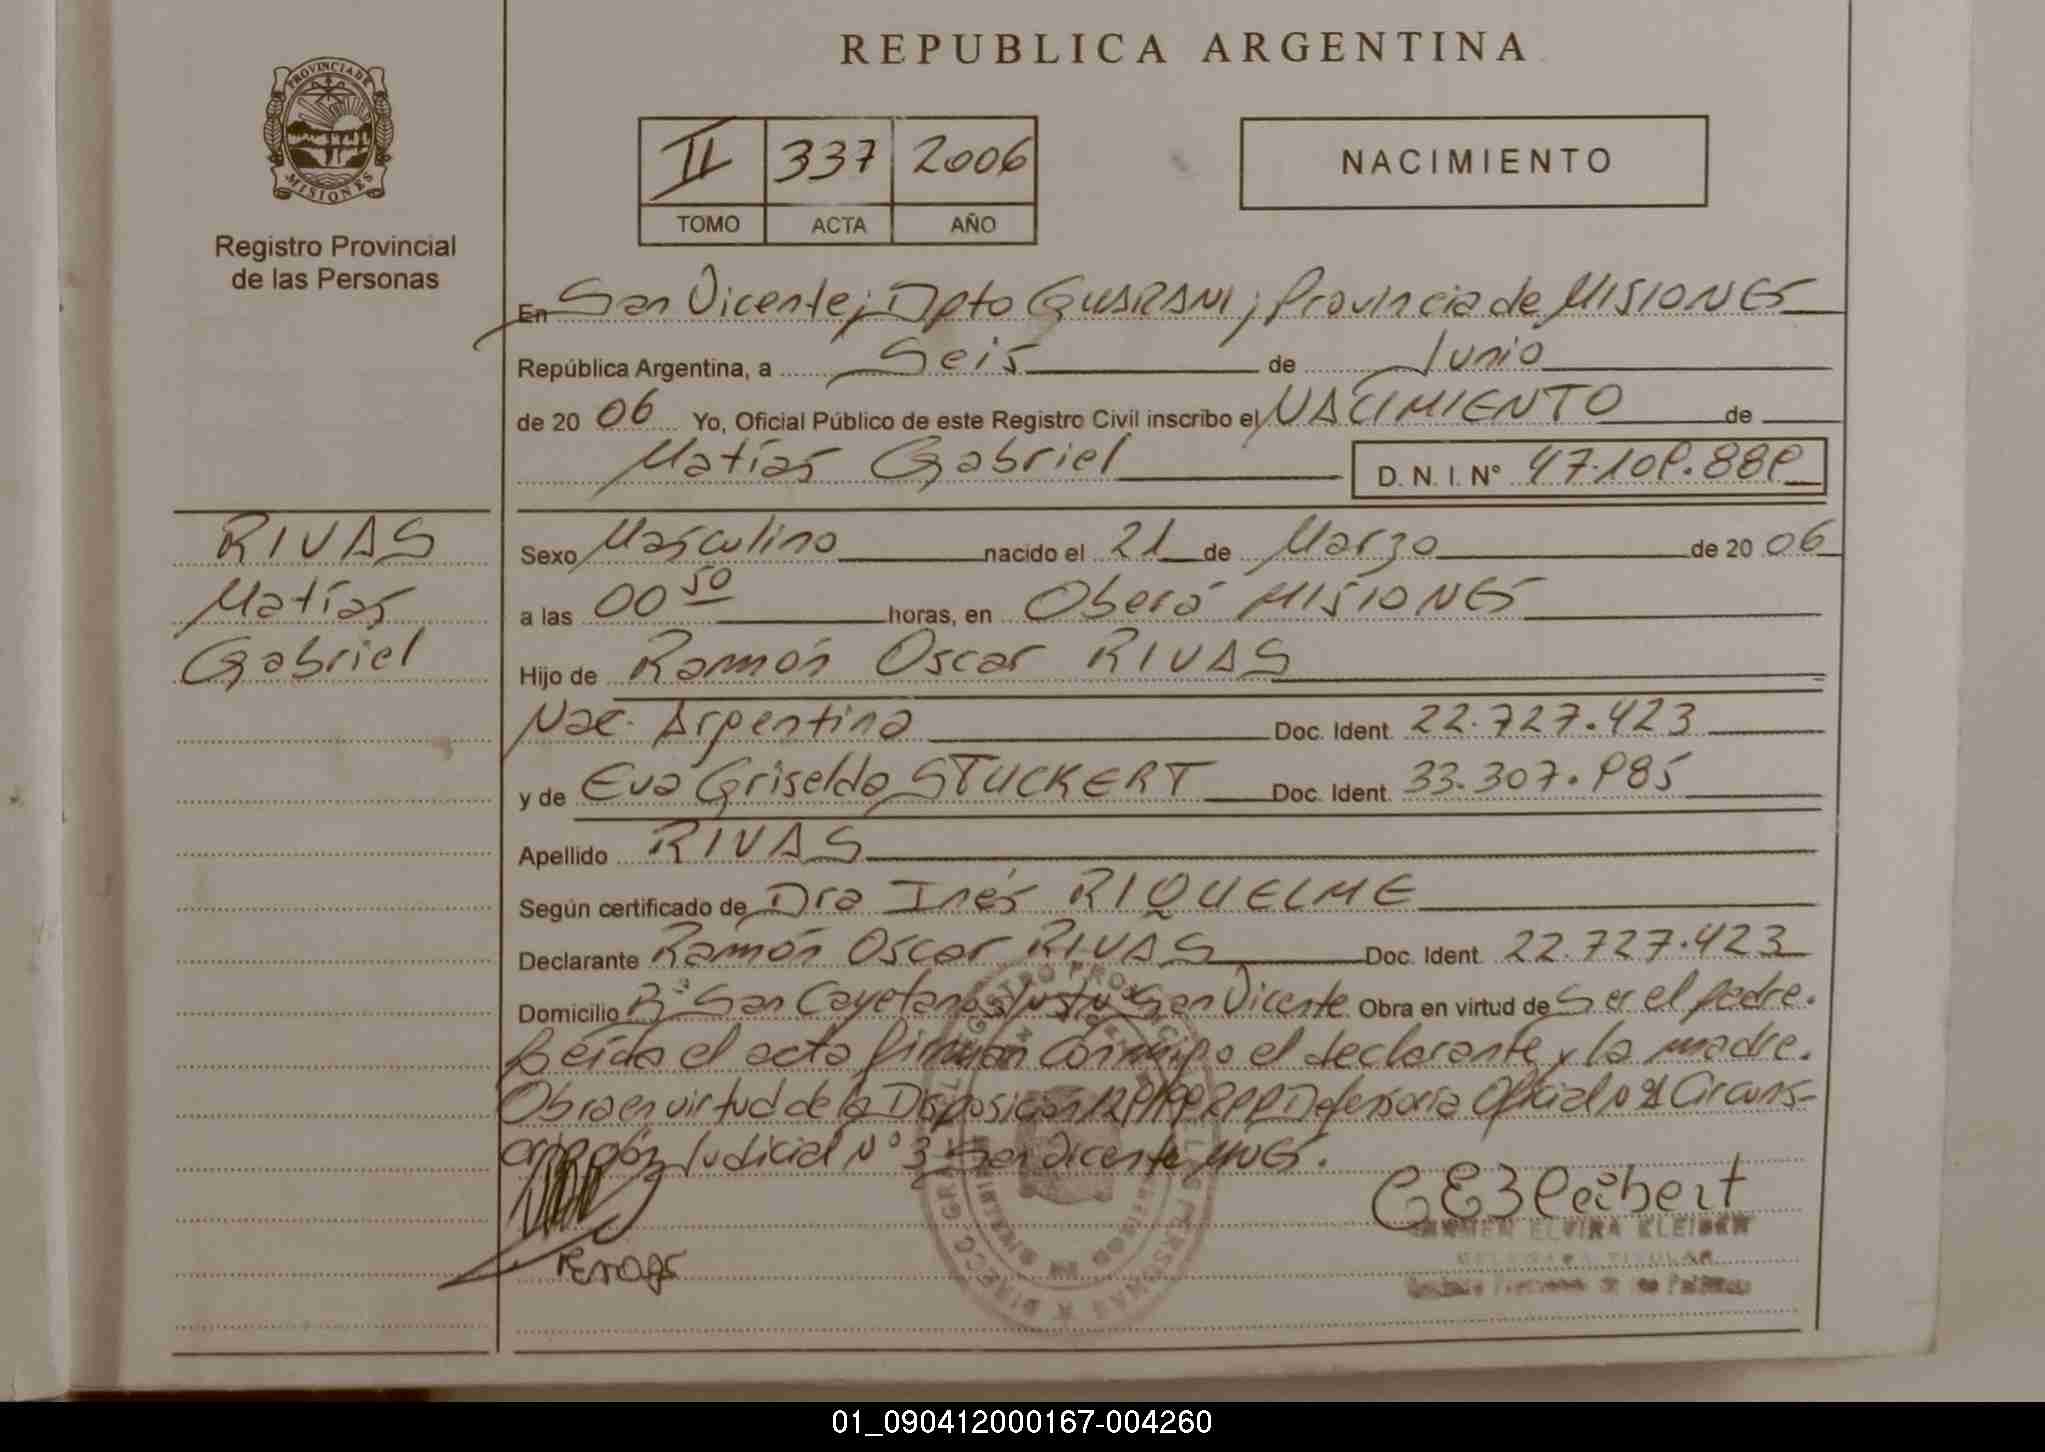 REPUBLICA ARGENTINA
PROVINCIA DE MISIONES
Registro Provincial
de las Personas
II 337 2006
TOMO ACTA AÑO
NACIMIENTO
En San Vicente; Dpto GUARANI; Provincia de MISIONES
República Argentina, a Seis de Junio
de 2006 Yo, Oficial Público de este Registro Civil inscribo el NACIMIENTO de
Matías Gabriel D. N. I. N° 47.109.889
RIVAS
Matías
Gabriel
Sexo Masculino nacido el 21 de Marzo de 2006
a las 00 50 horas, en Oberá MISIONES
Hijo de Ramón Oscar RIVAS
Nac. Argentina Doc. Ident. 22.727.423
y de Eva Griselda STUCKERT Doc. Ident. 33.307.985
Apellido RIVAS
Según certificado de Dra Inés RIQUELME
Declarante Ramón Oscar RIVAS Doc. Ident. 22.727.423
Domicilio B° San Cayetano San Vicente Obra en virtud de Ser el padre.
Leída el acta firman conmigo el declarante y la madre.
Obra en virtud de la Disposición Defensoria Oficial Circuns-
cripción Judicial N° 3 San Vicente MNES.
CARMEN ELVIRA KLEIBER
TITULAR
01_090412000167-004260